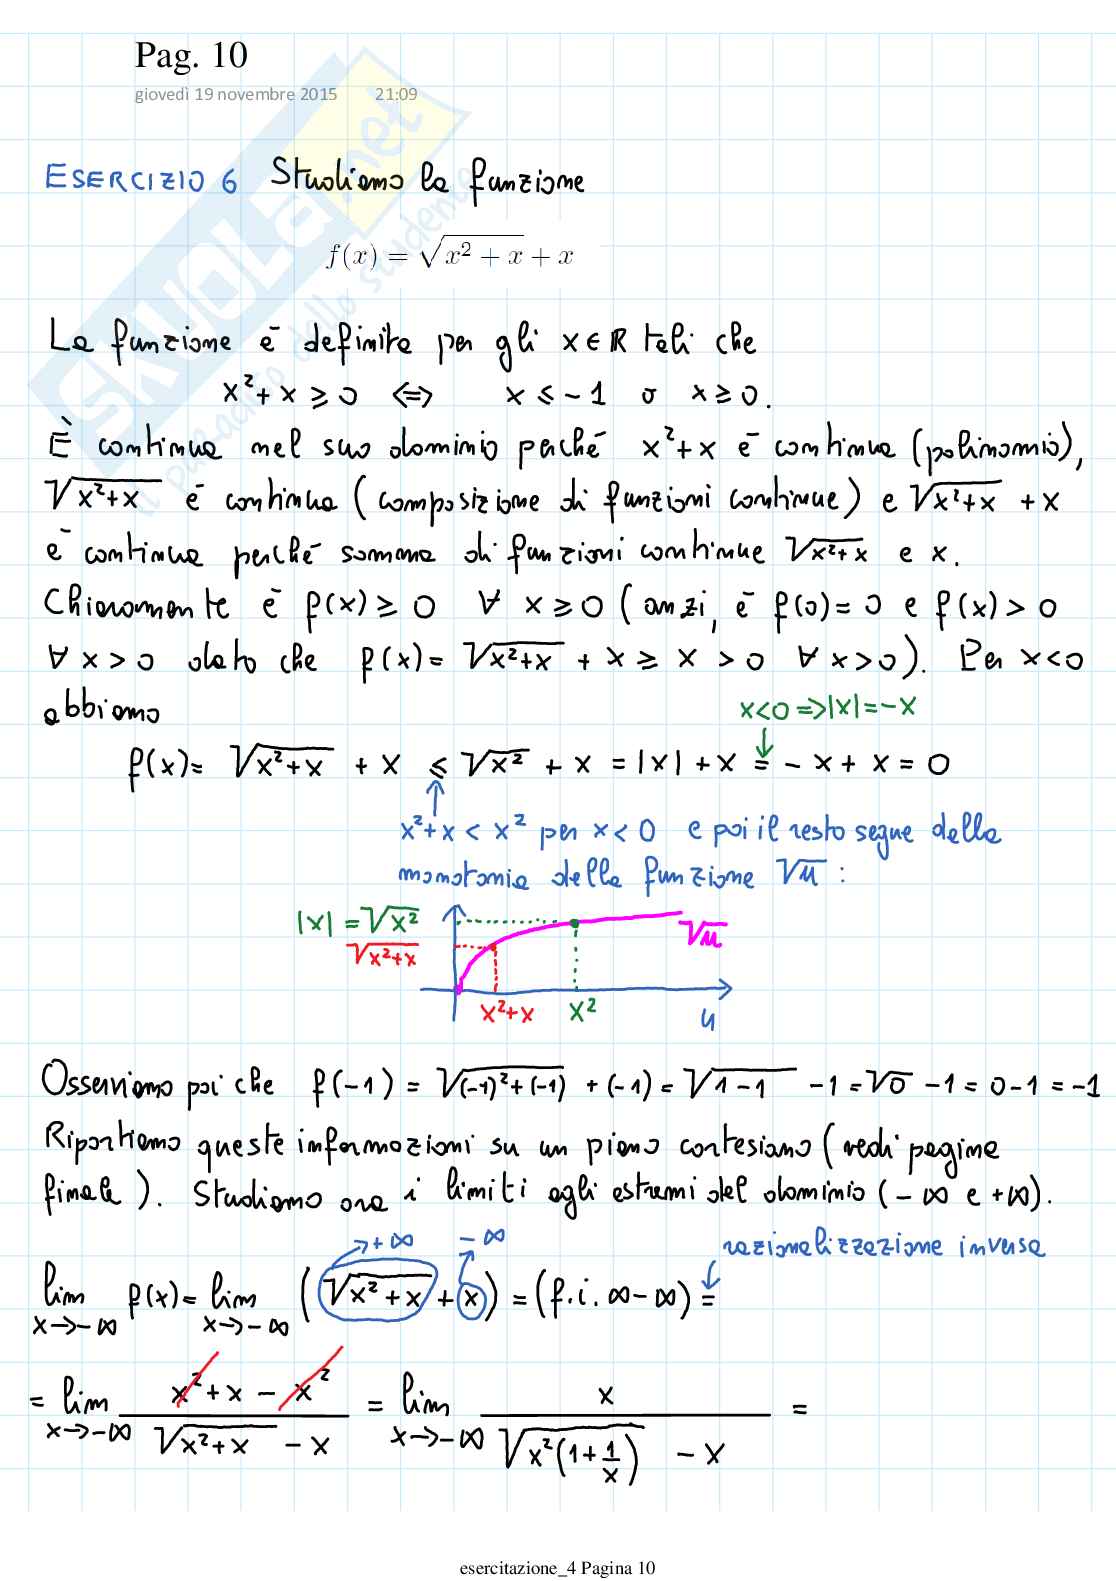 Pag. 10
giovedì 19 novembre 2015 21:09
SKUOLA.net
il paradiso dello studente
ESERCIZIO 6 Studiamo la funzione
f(x) = √(x² + x) + x
La funzione è definita per gli x ∈ ℝ tali che
x² + x ≥ 0 ⟺ x ≤ -1 o x ≥ 0.
È continua nel suo dominio perché x²+x è continua (polinomio),
√(x²+x) è continua (composizione di funzioni continue) e √(x²+x) + x
è continua perché somma di funzioni continue √(x²+x) e x.
Chiaramente è f(x) ≥ 0 ∀ x ≥ 0 (anzi, è f(0) = 0 e f(x) > 0
∀ x > 0 dato che f(x) = √(x²+x) + x ≥ x > 0 ∀ x > 0). Per x < 0
abbiamo
x<0 ⇒ |x| = -x
f(x) = √(x²+x) + x ≤ √(x²) + x = |x| + x = -x + x = 0
x²+x < x² per x < 0 e poi il resto segue dalla
monotonia della funzione √u :
|x| = √(x²)
√u
√(x²+x)
x²+x x² u
Osserviamo poi che f(-1) = √((-1)²+(-1)) + (-1) = √(1-1) - 1 = √0 - 1 = 0-1 = -1
Riportiamo queste informazioni su un piano cartesiano (vedi pagina
finale). Studiamo ora i limiti agli estremi del dominio (-∞ e +∞).
→+∞ -∞ razionalizzazione inversa
lim x→-∞ f(x) = lim x→-∞ (√(x²+x) + x) = (f.i. ∞-∞) =
= lim x→-∞ (x²+x - x²)/(√(x²+x) - x) = lim x→-∞ x/(√(x²(1+1/x)) - x) =
esercitazione_4 Pagina 10